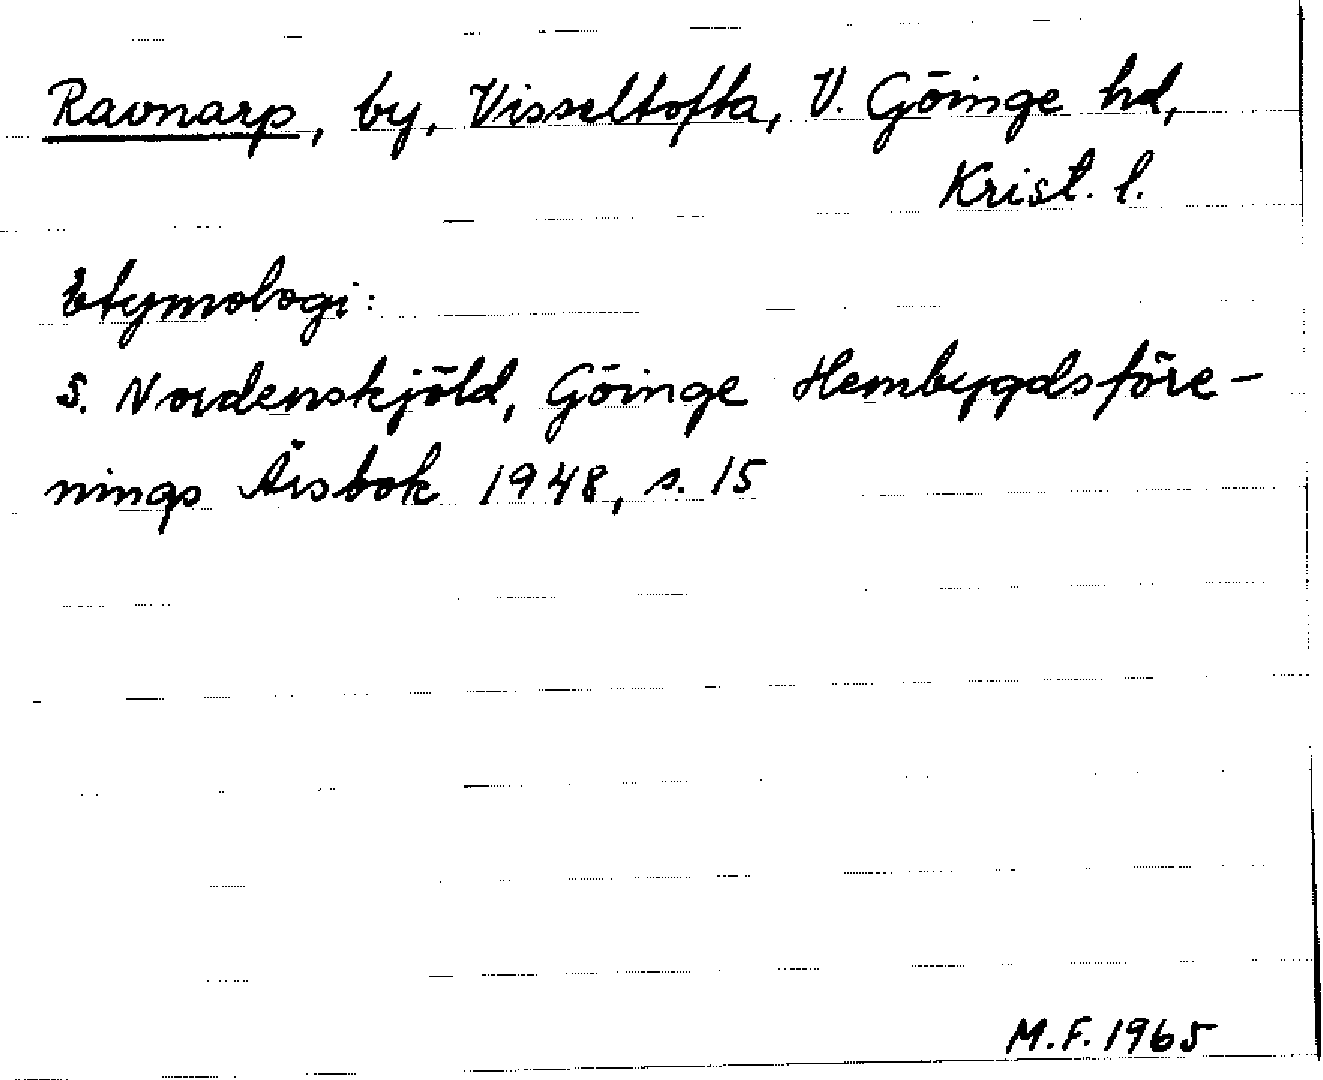 Ravnarp, by, Visseltofta, V. Göinge hd,
Krist. l.
Etymologi:
S. Nordenskjöld, Göinge Hembygdsföre-
nings Årsbok 1948, s. 15
M.F. 1965